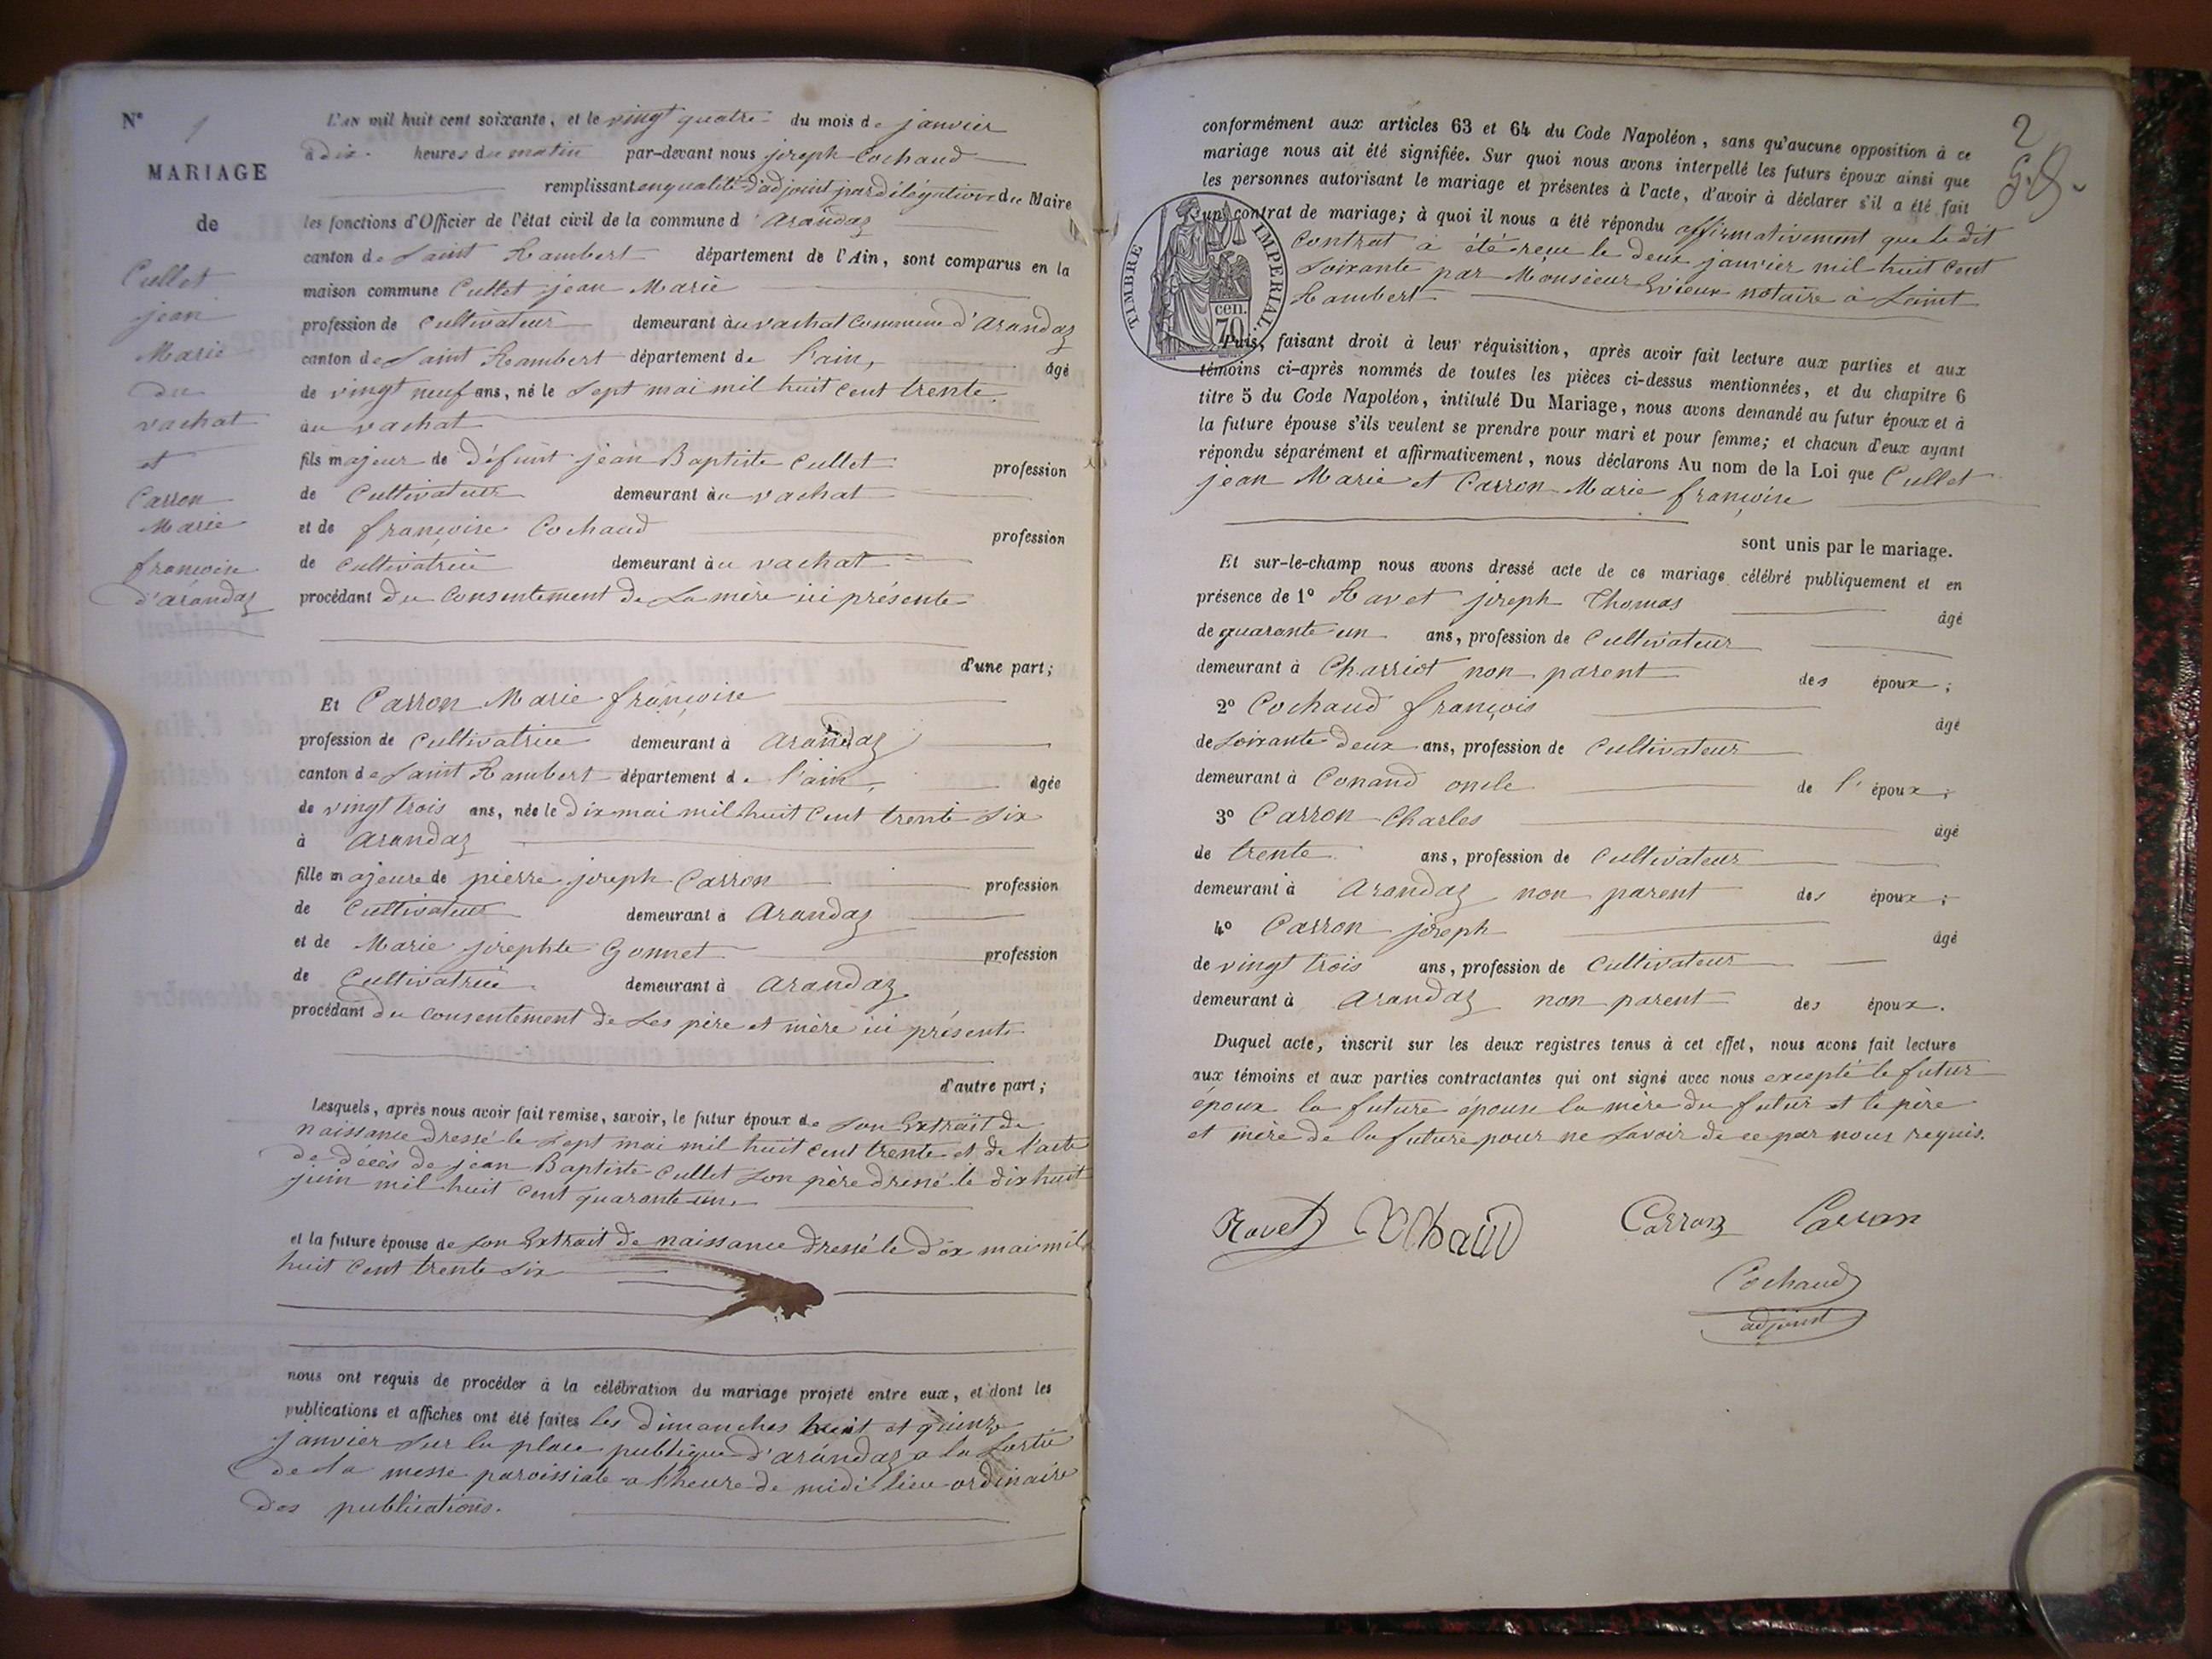 N° 1
MARIAGE
de
Cullet
jean
Marie
du
vachat
et
Carron
Marie
françoise
d'arandaz
L'AN mil huit cent soixante, et le vingt quatre du mois de janvier
à dix heures du matin par-devant nous joseph Cochaud
remplissant en qualité d'adjoint par délégation du Maire
les fonctions d'Officier de l'état civil de la commune d'arandaz
canton de Saint Rambert département de l'Ain, sont comparus en la
maison commune Cullet jean Marie
profession de Cultivateur demeurant àu vachat commune d'arandaz
canton de Saint Rambert département de l'ain, âgé
de vingt neuf ans, né le Sept mai mil huit cent trente
àu vachat
fils majeur de Défunt jean Baptiste Cullet profession
de Cultivateur demeurant àu vachat
et de françoise Cochaud profession
de Cultivatrice demeurant àu vachat
procédant du Consentement de Sa mère ici présente
d'une part;
Et Carron Marie françoise
profession de Cultivatrice demeurant à Arandaz
canton de Saint Rambert département de l'ain, âgée
de vingt trois ans, née le dix mai mil huit cent trente Six
à Arandaz
fille majeure de pierre joseph Carron profession
de Cultivateur demeurant à Arandaz
et de Marie josephte Gonnet profession
de Cultivatrice demeurant à Arandaz
procédant du consentement de Ses père et mère ici présents
d'autre part;
Lesquels, après nous avoir fait remise, savoir, le futur époux de Son Extrait de
naissance dressé le Sept mai mil huit cent trente et de l'acte
de décès de jean Baptiste Cullet Son père dressé le dix huit
juin mil huit cent quarante un
et la future épouse de Son Extrait de naissance dressé le dix mai mil
huit cent trente Six
nous ont requis de procéder à la célébration du mariage projeté entre eux, et dont les
publications et affiches ont été faites les dimanches huit et quinze
janvier Sur la place publique d'arandaz a la Sortie
de la messe paroissiale a l'heure de midi lieu ordinaire
des publications.
2
conformément aux articles 63 et 64 du Code Napoléon, sans qu'aucune opposition à ce
mariage nous ait été signifiée. Sur quoi nous avons interpellé les futurs époux ainsi que
les personnes autorisant le mariage et présentes à l'acte, d'avoir à déclarer s'il a été fait
un contrat de mariage; à quoi il nous a été répondu affirmativement que le dit
Contrat à été reçu le deux janvier mil huit cent
Soixante par Monsieur vieux notaire à Saint
Rambert
TIMBRE IMPERIAL.
70 cen.
Puis, faisant droit à leur réquisition, après avoir fait lecture aux parties et aux
témoins ci-après nommés de toutes les pièces ci-dessus mentionnées, et du chapitre 6
titre 5 du Code Napoléon, intitulé Du Mariage, nous avons demandé au futur époux et à
la future épouse s'ils veulent se prendre pour mari et pour femme; et chacun d'eux ayant
répondu séparément et affirmativement, nous déclarons Au nom de la Loi que Cullet
jean Marie et Carron Marie françoise
sont unis par le mariage.
Et sur-le-champ nous avons dressé acte de ce mariage célébré publiquement et en
présence de 1° Ravet joseph Thomas âgé
de quarante un ans, profession de Cultivateur
demeurant à Charriot non parent des époux;
2° Cochaud françois âgé
de Soixante deux ans, profession de Cultivateur
demeurant à Conand oncle de l'époux;
3° Carron Charles âgé
de trente ans, profession de Cultivateur
demeurant à Arandaz non parent des époux;
4° Carron joseph âgé
de vingt trois ans, profession de Cultivateur
demeurant à Arandaz non parent des époux.
Duquel acte, inscrit sur les deux registres tenus à cet effet, nous avons fait lecture
aux témoins et aux parties contractantes qui ont signé avec nous excepté le futur
époux la future épouse la mère du futur et le père
et mère de la future pour ne Savoir de ce par nous requis.
Ravet Cochaud Carron Carron
Cochaud
adjoint